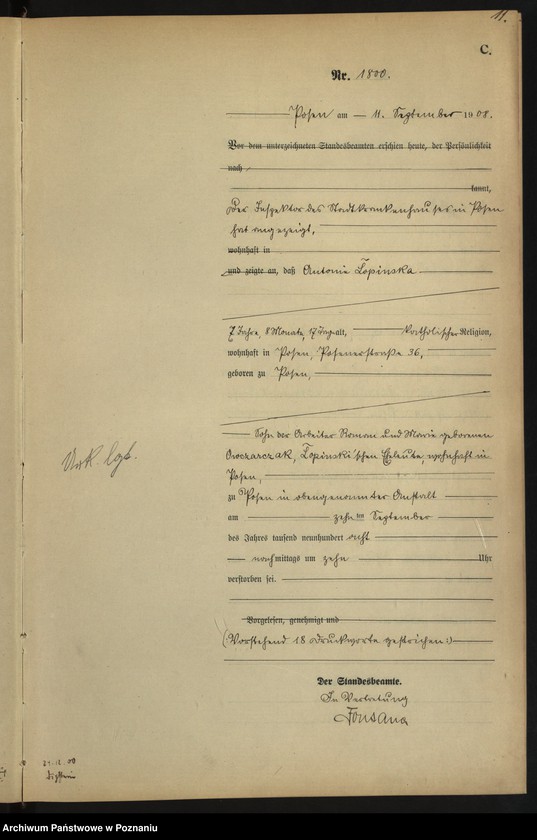 11.
C.
Nr. 1800.
Posen am 11. September 1908.
Vor dem unterzeichneten Standesbeamten erschien heute, der Persönlichkeit
nach
kannt,
Der Inspektor des Stadtkrankenhauses in Posen
hat angezeigt,
wohnhaft in
und zeigte an, daß Antonie Łopinska
7 Jahre, 8 Monate, 17 Tage alt, katholischer Religion,
wohnhaft in Posen, Posenerstraße 36,
geboren zu Posen,
der Arbeiter Roman und Marie geborenen
Łopinski'schen Eheleute, wohnhaft in
Posen,
zu Posen in obengenannter Anstalt
am zehnten September
des Jahres tausend neunhundert acht
nachmittags um zehn Uhr
verstorben sei.
Vorgelesen, genehmigt und
(Vorstehend 18 Druckworte gestrichen:)
Der Standesbeamte.
In Vertretung
Fontana
Archiwum Państwowe w Poznaniu